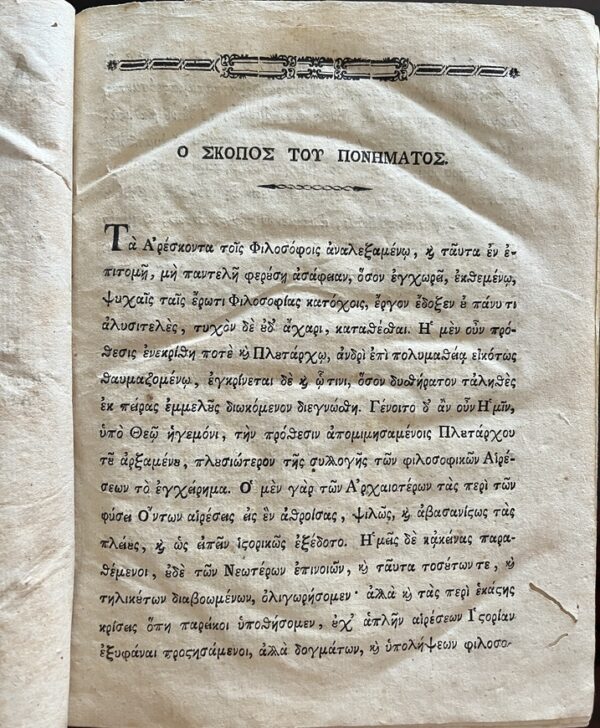 Ο ΣΚΟΠΟΣ ΤΟΥ ΠΟΝΗΜΑΤΟΣ.
Τὰ Ἀρέσκοντα τοῖς Φιλοσόφοις ἀναλεξαμένῳ, ϗ ταῦτα ἐν ἐπι-
τομῇ, μὴ παντελῆ φερȣ́σῃ ἀσάφειαν, ὅσον ἐγχωρεῖ, ἐκθεμένῳ,
ψυχαῖς ταῖς ἔρωτι Φιλοσοφίας κατόχοις, ἔργον ἔδοξεν ȣ̓ πάνυ τι
ἀλυσιτελὲς, τυχὸν δὲ ȣ̓δ' ἄχαρι, καταθέσθαι. Ἡ μὲν οὖν πρό-
θεσις ἐνεκρίθη ποτὲ ϗ Πλȣτάρχῳ, ἀνδρὶ ἐπὶ πολυμαθείᾳ εἰκότως
θαυμαζομένῳ, ἐγκρίνεται δὲ ϗ ᾧτινι, ὅσον δυσθήρατον τἀληθὲς
ἐκ πείρας ἐμμελȣ͂ς διωκόμενον διεγνώσθη. Γένοιτο δ' ἂν οὖν Ἡμῖν,
ὑπὸ Θεῷ ἡγεμόνι, τὴν πρόθεσιν ἀπομιμησαμένοις Πλȣτάρχου
τȣ͂ ἀρξαμένȣ, πλȣσιώτερον τῆς συλλογῆς τῶν φιλοσοφικῶν Αἱρέ-
σεων τὸ ἐγχείρημα. Ὁ μὲν γὰρ τῶν Ἀρχαιοτέρων τὰς περὶ τῶν
φύσει Ὄντων αἱρέσεις εἰς ἓν ἀθροίσας, ψιλῶς, ϗ ἀβασανίϛως τὰς
πλείȣς, ϗ ὡς εἰπεῖν ἱϛορικῶς ἐξέδοτο. Ἡμεῖς δὲ κἀκείνας παρα-
θέμενοι, ȣ̓δὲ τῶν Νεωτέρων ἐπινοιῶν, ϗ ταῦτα τοσȣ́των τε, ϗ
τηλικȣ́των διαβοωμένων, ὀλιγωρήσομεν· ἀλλὰ ϗ τὰς περὶ ἑκάϛης
κρίσεις ὅπη παρείκοι ὑποθήσομεν, ȣ̓χ' ἁπλῆν αἱρέσεων Ἱϛορίαν
ἐξυφάναι προϛησάμενοι, ἀλλὰ δογμάτων, ϗ ὑπολήψεων φιλοσο-